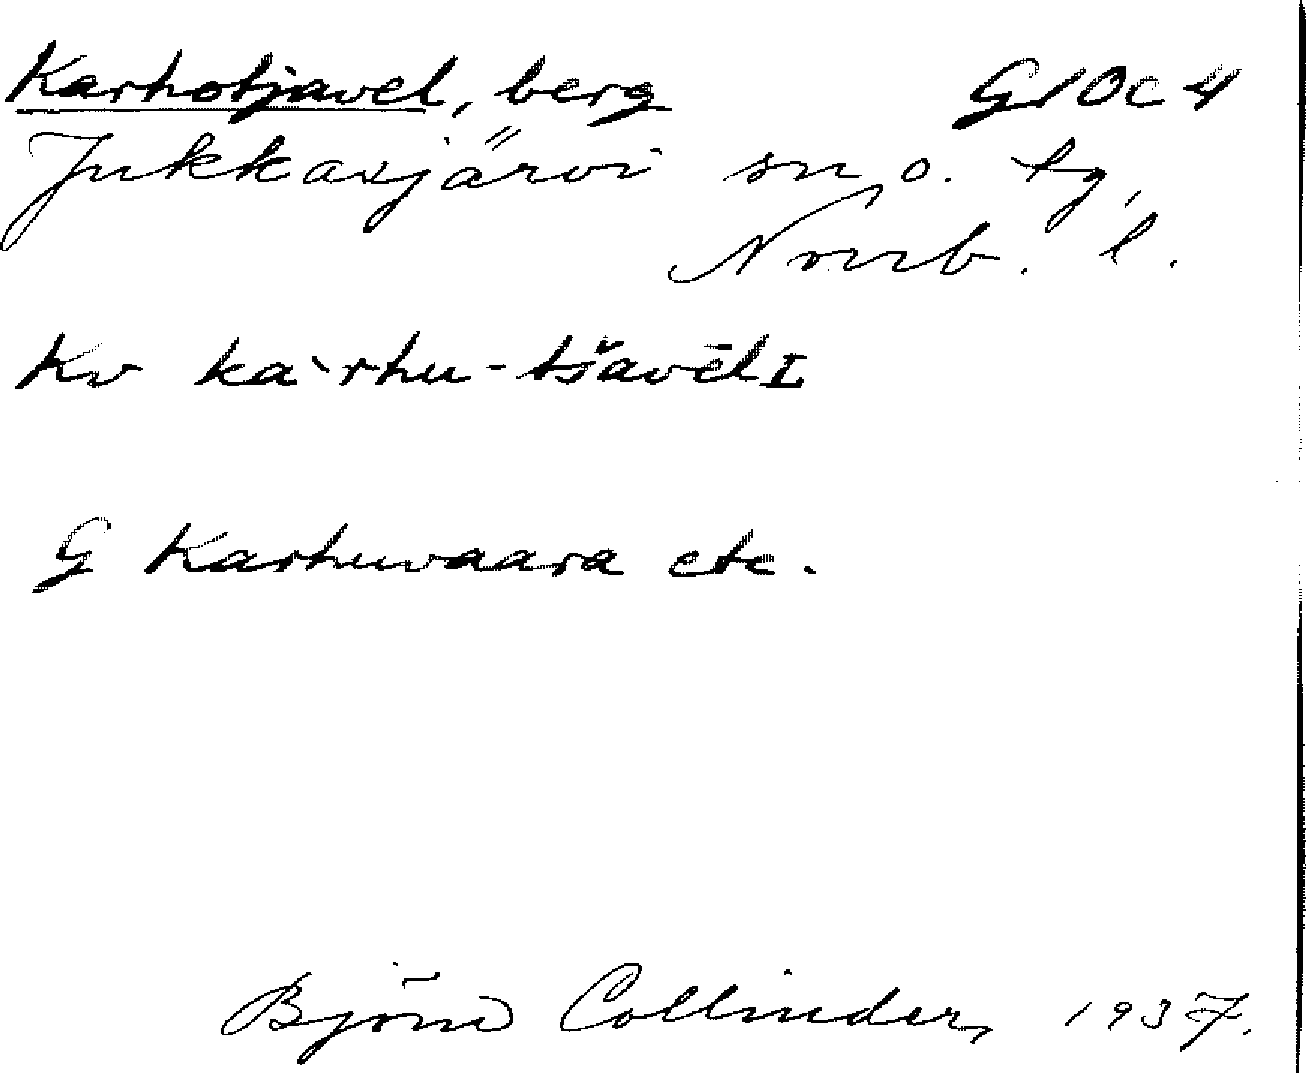 Karhotjavel, berg G10c4
Jukkasjärvi sn, o. tg,
Norrb. l.
Kv ka`rhu-tšavēlI
G Karhuvaara etc.
Björn Collinder, 1937.